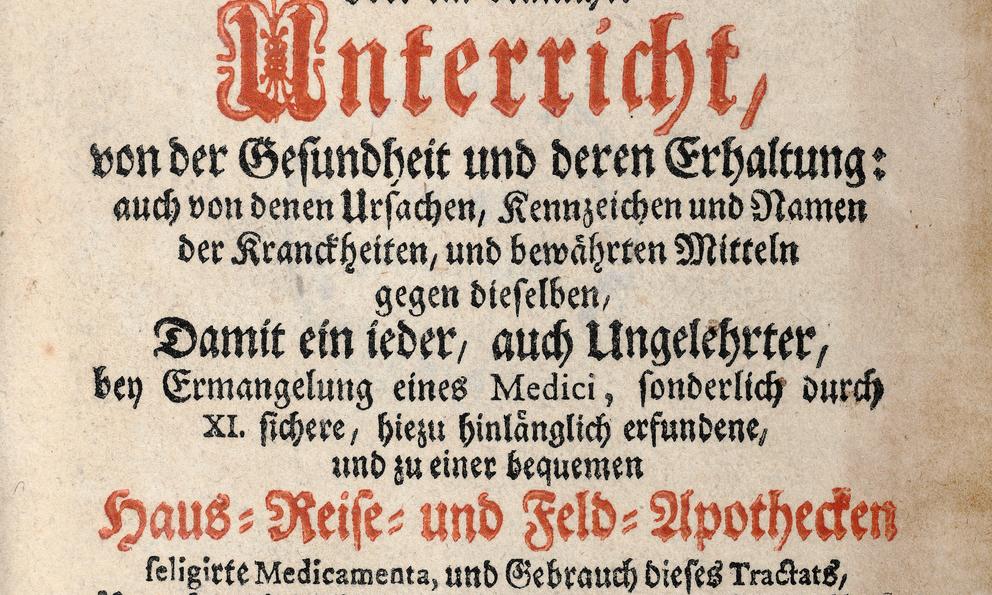 Unterricht,
von der Gesundheit und deren Erhaltung:
auch von denen Ursachen, Kennzeichen und Namen
der Kranckheiten, und bewährten Mitteln
gegen dieselben,
Damit ein ieder, auch Ungelehrter,
bey Ermangelung eines Medici, sonderlich durch
XI. sichere, hiezu hinlänglich erfundene,
und zu einer bequemen
Haus- Reise- und Feld-Apothecken
seligirte Medicamenta, und Gebrauch dieses Tractats,